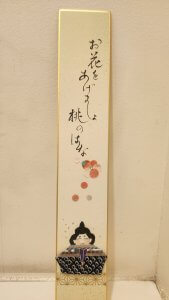 お花を
あげましょ
桃のはな